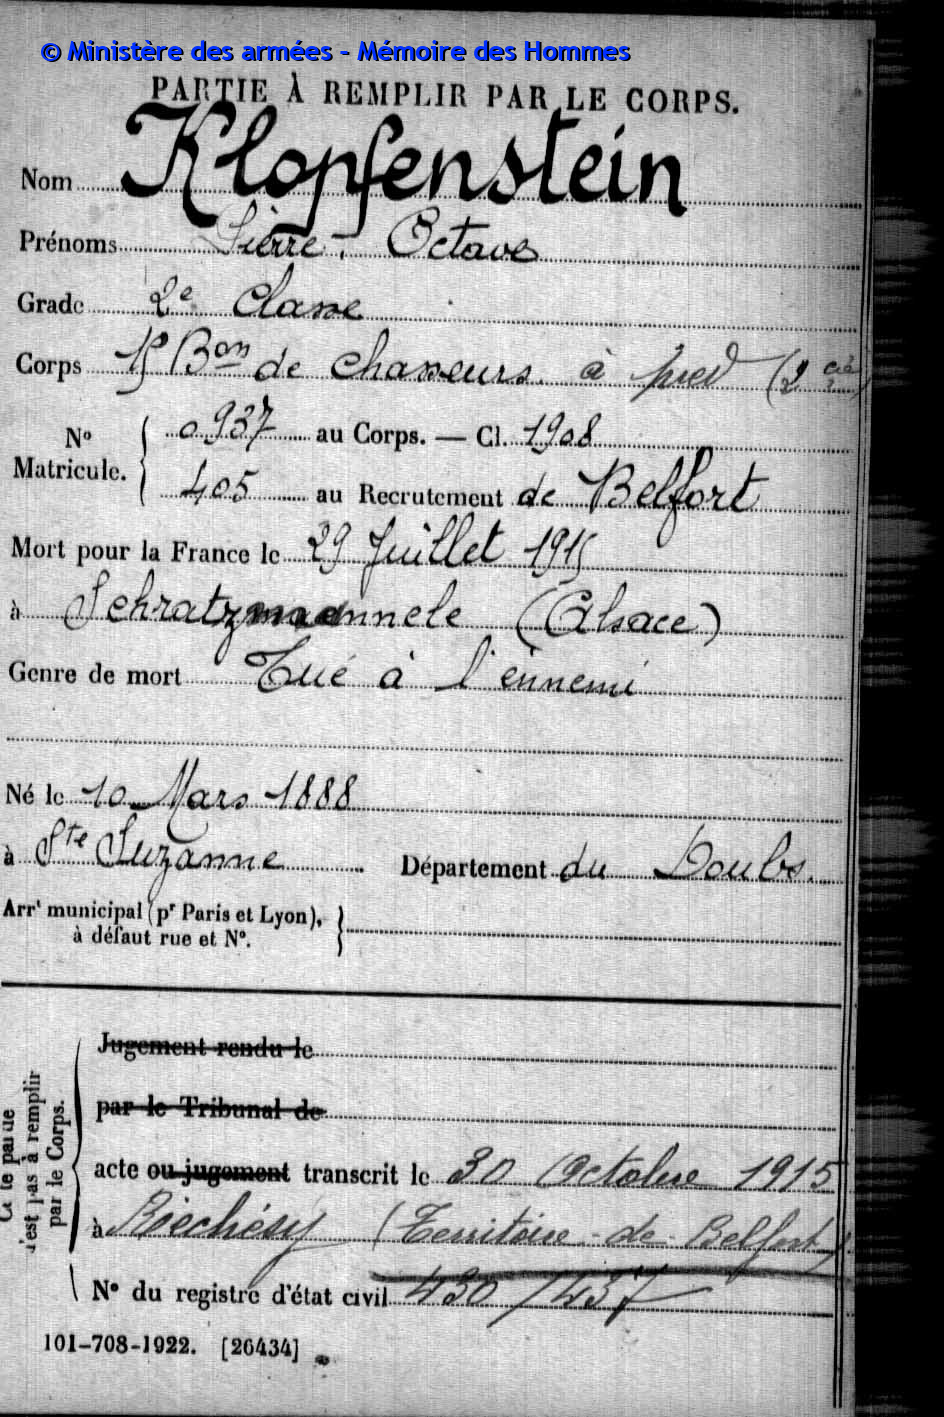 © Ministère des armées - Mémoire des Hommes
PARTIE À REMPLIR PAR LE CORPS.
Nom Klopfenstein
Prénoms Pierre - Octave
Grade 2e Classe
Corps 15 Bon de chasseurs à pied (2 cie)
No Matricule. 0937 au Corps. — Cl. 1908
405 au Recrutement de Belfort
Mort pour la France le 29 Juillet 1915
à Schratzmannele (Alsace)
Genre de mort Tué à l'ennemi
Né le 10 Mars 1888
à Ste Suzanne Département du Doubs.
Arrt municipal (pr Paris et Lyon),
à défaut rue et No.
Jugement rendu le
par le Tribunal de
acte ou jugement transcrit le 30 Octobre 1915
à Réchésy (Territoire de Belfort)
No du registre d'état civil 430/437
Cette partie
n'est pas à remplir
par le Corps.
101-708-1922. [26434]